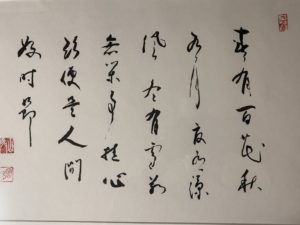 春有百花秋
有月夏有凉
风冬有雪若
无闲事挂心
头便是人间
好时节